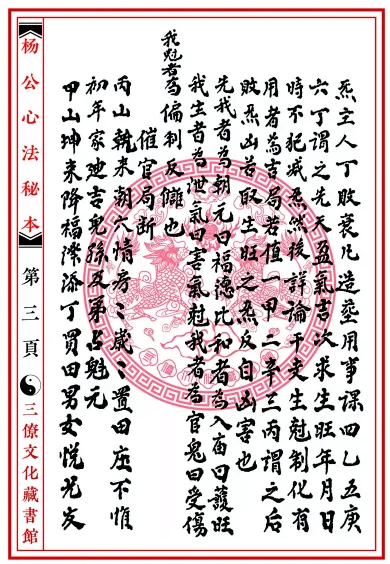 炁主人丁敗衰凡造塋用事課四乙五庚
六丁謂之先天盈氣吉次求生旺年月日
時不犯滅炁然後詳論干支生尅制化有
用者為吉局若值一甲二辛三丙謂之后
敗炁凶若取生旺之炁反自凶害也
先我者為朝元曰福德比和者為入廟曰護旺
我生者為泄氣曰害氣尅我者為官鬼曰受傷
我尅者為偏制反讎也
催官局斷
丙山巽來朝穴情方々歲々置田庄不惟
初年家迪吉兒孫及第占魁元
甲山坤來降福滌添丁買田男女悅兄友
杨公心法秘本
第三頁
三僚文化藏書館